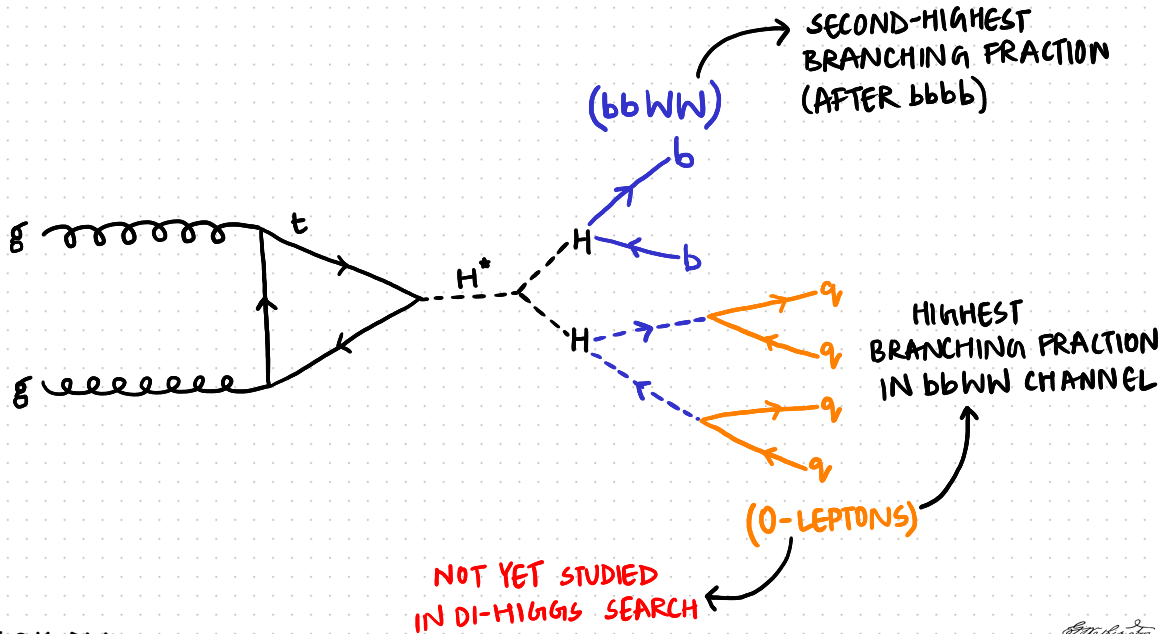 SECOND-HIGHEST
BRANCHING FRACTION
(AFTER bbbb)
(bbWW)
b
g
t
H
b
H*
q
H
q
HIGHEST
BRANCHING FRACTION
IN bbWW CHANNEL
g
q
q
(0-LEPTONS)
NOT YET STUDIED
IN DI-HIGGS SEARCH